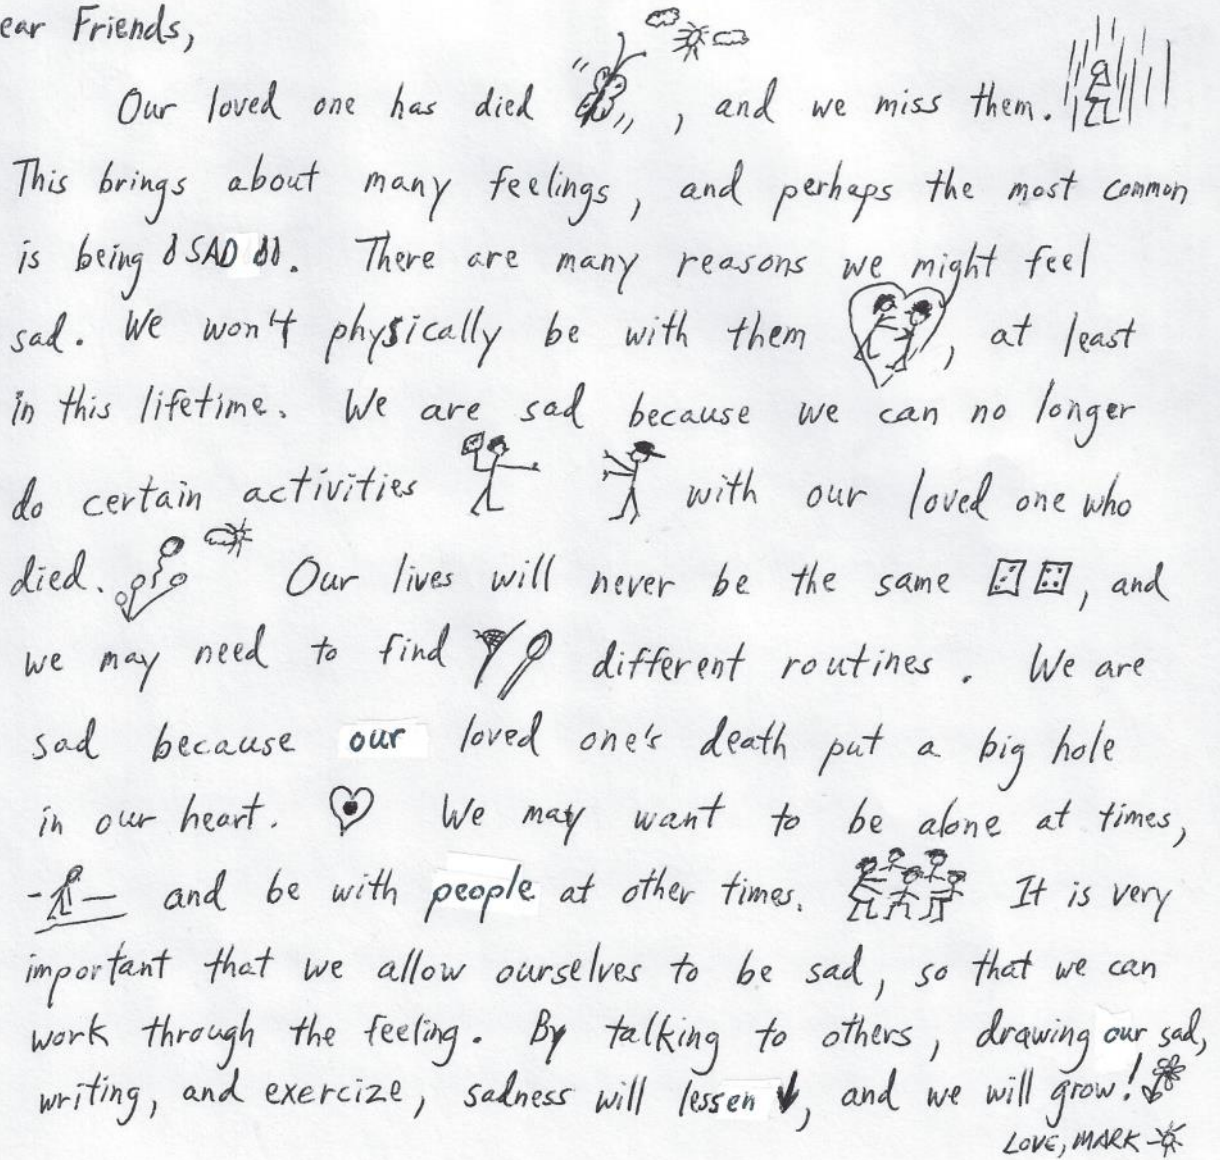 ear Friends,
Our loved one has died , and we miss them.
This brings about many feelings, and perhaps the most common
is being SAD . There are many reasons we might feel
sad. We won't physically be with them , at least
in this lifetime. We are sad because we can no longer
do certain activities with our loved one who
died. Our lives will never be the same , and
we may need to find different routines. We are
sad because our loved one's death put a big hole
in our heart. We may want to be alone at times,
and be with people at other times. It is very
important that we allow ourselves to be sad, so that we can
work through the feeling. By talking to others, drawing our sad,
writing, and exercize, sadness will lessen , and we will grow!
LOVE, MARK